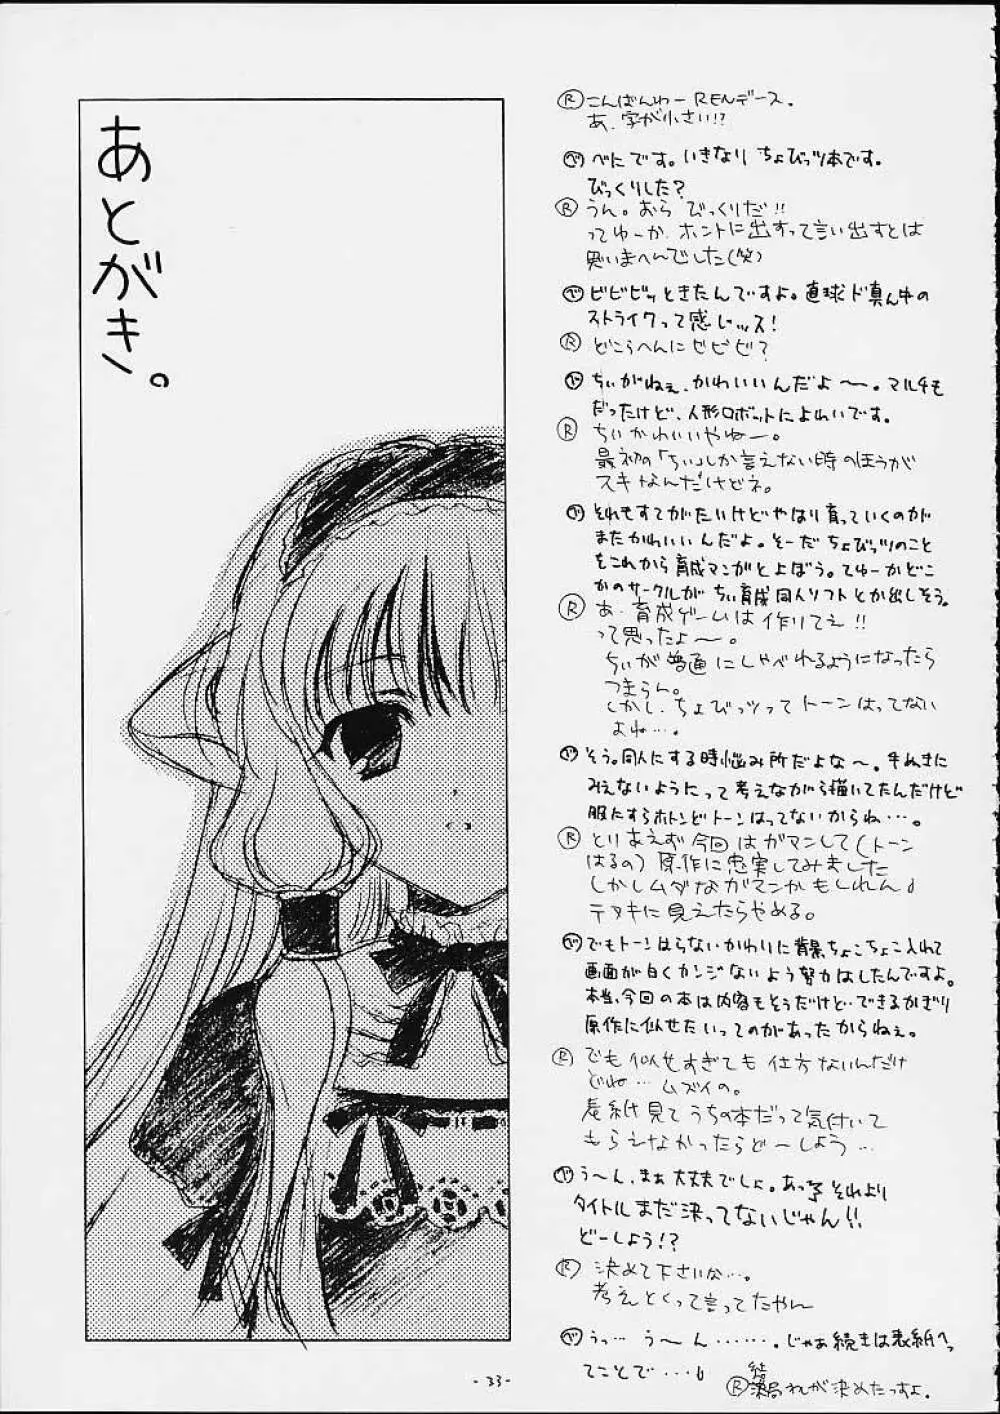 あとがき。
Ⓡ こんばんわー RENデース。
あ、字が小さい!?
べ べにです。いきなり ちょびっツ本です。
びっくりした?
Ⓡ うん。おら びっくりだ!!
ってゆーか、ホントに出すって言い出すとは
思いまへんでした(笑)
べ ビビビッときたんですよ。直球ド真ん中の
ストライクって感じッス!
Ⓡ どこらへんにビビビ?
べ ちぃがねぇ、かわいいんだよ〜〜。マルチも
だったけど、人形ロボットによわいです。
Ⓡ ちぃかわいいやねー。
最初の「ちぃ」しか言えない時のほうが
スキなんだけどネ。
べ それもすてがたいけどやはり育っていくのが
またかわいいんだよ。そーだ ちょびっツのこと
をこれから育成マンガとよぼう。てゆーかどこ
かのサークルが ちぃ育成同人ソフトとか出しそう。
Ⓡ あ、育成ゲームは 作りてえ!!
って思ったよ〜。
ちぃが普通にしゃべれるようになったら
つまらん。
しかし、ちょびっツって トーンはってない
よね…。
べ そう。同人にする時悩み所だよな〜。手ぬきに
みえないようにって考えながら描いてたんだけど
服にすらホトンどトーンはってないからね…。
Ⓡ とりあえず今回はガマンして(トーン
はるの)原作に忠実してみました
しかしムダながマンかもしれん。
テヌキに見えたらやめる。
べ でもトーンはらないかわいに背景ちょこちょこ入れて
画面が白くカンジないよう努力はしたんですよ。
本当、今回の本は内容もそうだけど…できるかぎり
原作に似せたいってのがあったからねぇ。
Ⓡ でも 似せすぎても 仕方ないんだけ
どね… ムズイの。
表紙見て うちの本だって気付いて
もらえなかったらどーしよう…
べ う〜ん、まぁ大丈夫でしょ。あっ それより
タイトルまだ決ってないじゃん!!
どーしよう!?
Ⓡ 決めて下さいな…。
考えとくって言ってたやん
べ うっ… う〜ん……。じゃあ続きは表紙へっ
てことで…
Ⓡ 結局われが決めたっすよ。
-33-